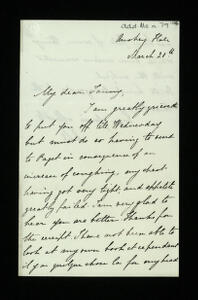 March 28th
My dear Tommy,
I am greatly grieved
to put you off till Wednesday
but must do so having to send
to Paget in consequence of an
increase of coughing, my chest
having got very tight, and appetite
greatly failed. I am very glad to
hear you are better. Thanks for
the receipt. I have not been able to
look at my own book at
for my head